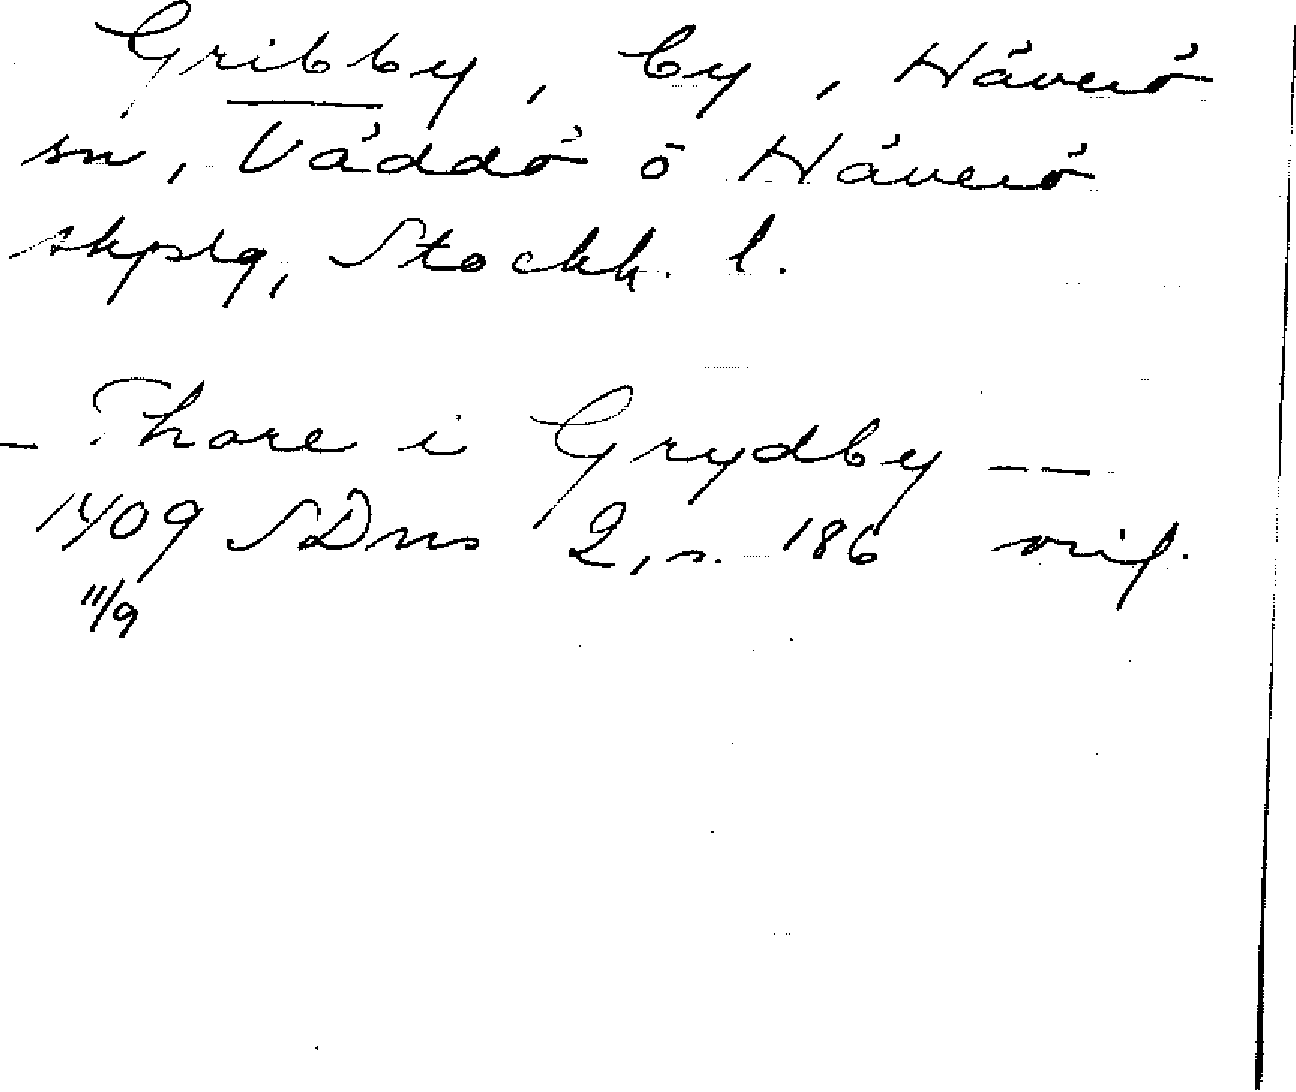 Gribby, by, Häverö
sn, Väddö o Häverö
skplg, Stockh. l.
– Thore i Grydby – –
1409 SDns 2, s. 186 orig.
11/9